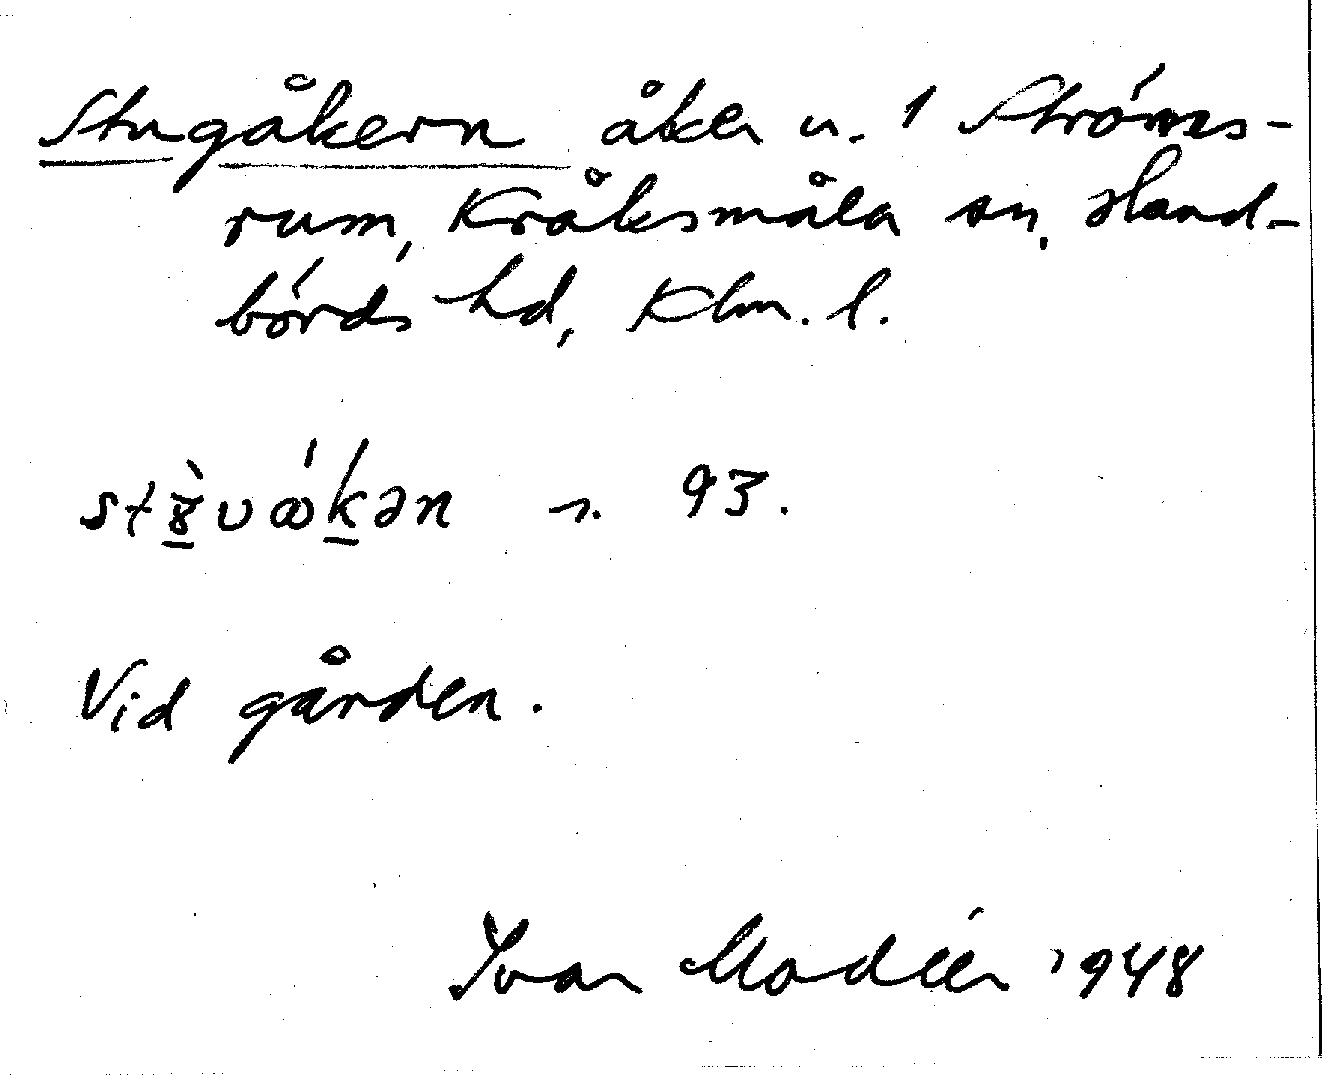 Stugåkern åker u. 1 Ströms-
rum, Kråksmåla sn, Hand-
börds hd, Klm. l.
n. 93.
Vid gården.
Ivar Modéer 1948